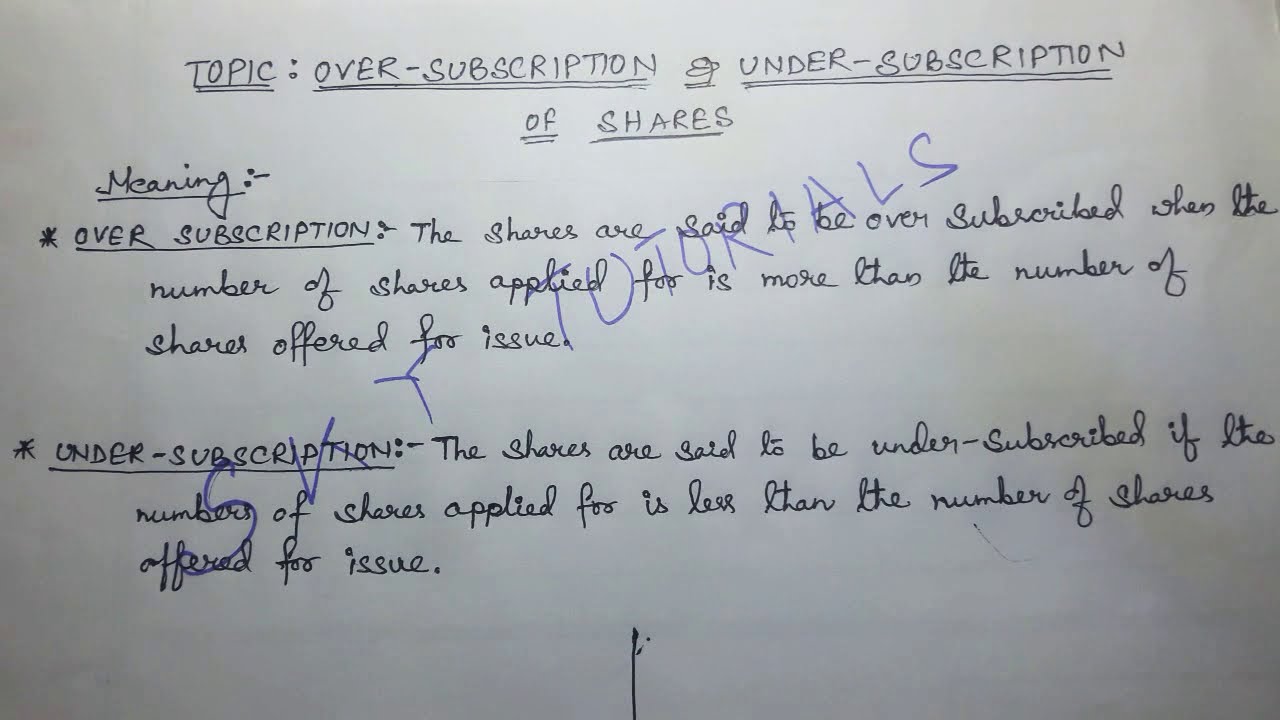 TOPIC: OVER-SUBSCRIPTION & UNDER-SUBSCRIPTION
OF SHARES
Meaning:-
* OVER SUBSCRIPTION:- The shares are said to be over subscribed when the
number of shares applied for is more than the number of
shares offered for issue.
* UNDER-SUBSCRIPTION:- The shares are said to be under-subscribed if the
numbers of shares applied for is less than the number of shares
offered for issue.
SVY TUTORIALS